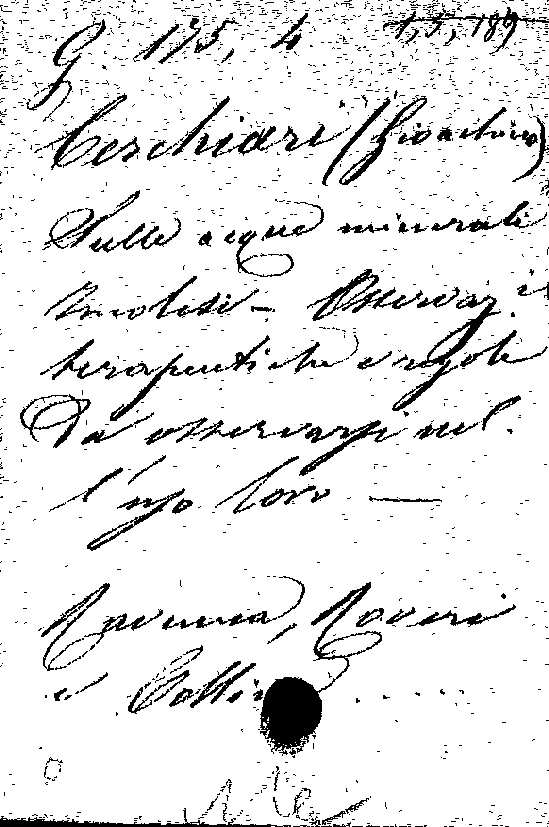 G. 175, 4 1, 5, 189
Cerchiari (Gioachino)
Sulle acque minerali
Imolesi – Osservaz.i
terapeutiche e regole
da osservarsi nel-
l'uso loro —
Ravenna, Roveri
e Collina .....